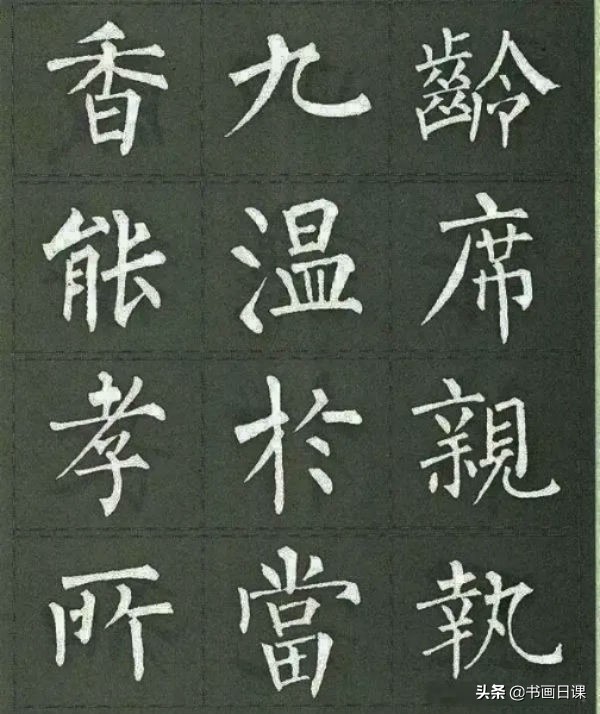 香九齡
能温席
孝於親
所當執
头条 @书画日课